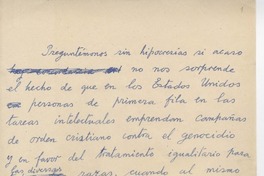 Preguntémonos sin hipocresías si acaso
no nos sorprende
el hecho de que en los Estados Unidos
personas de primera fila en las
tareas intelectuales emprendan campañas
de orden cristiano contra el genocidio
y en favor del tratamiento igualitario para
las diversas razas, cuando al mismo